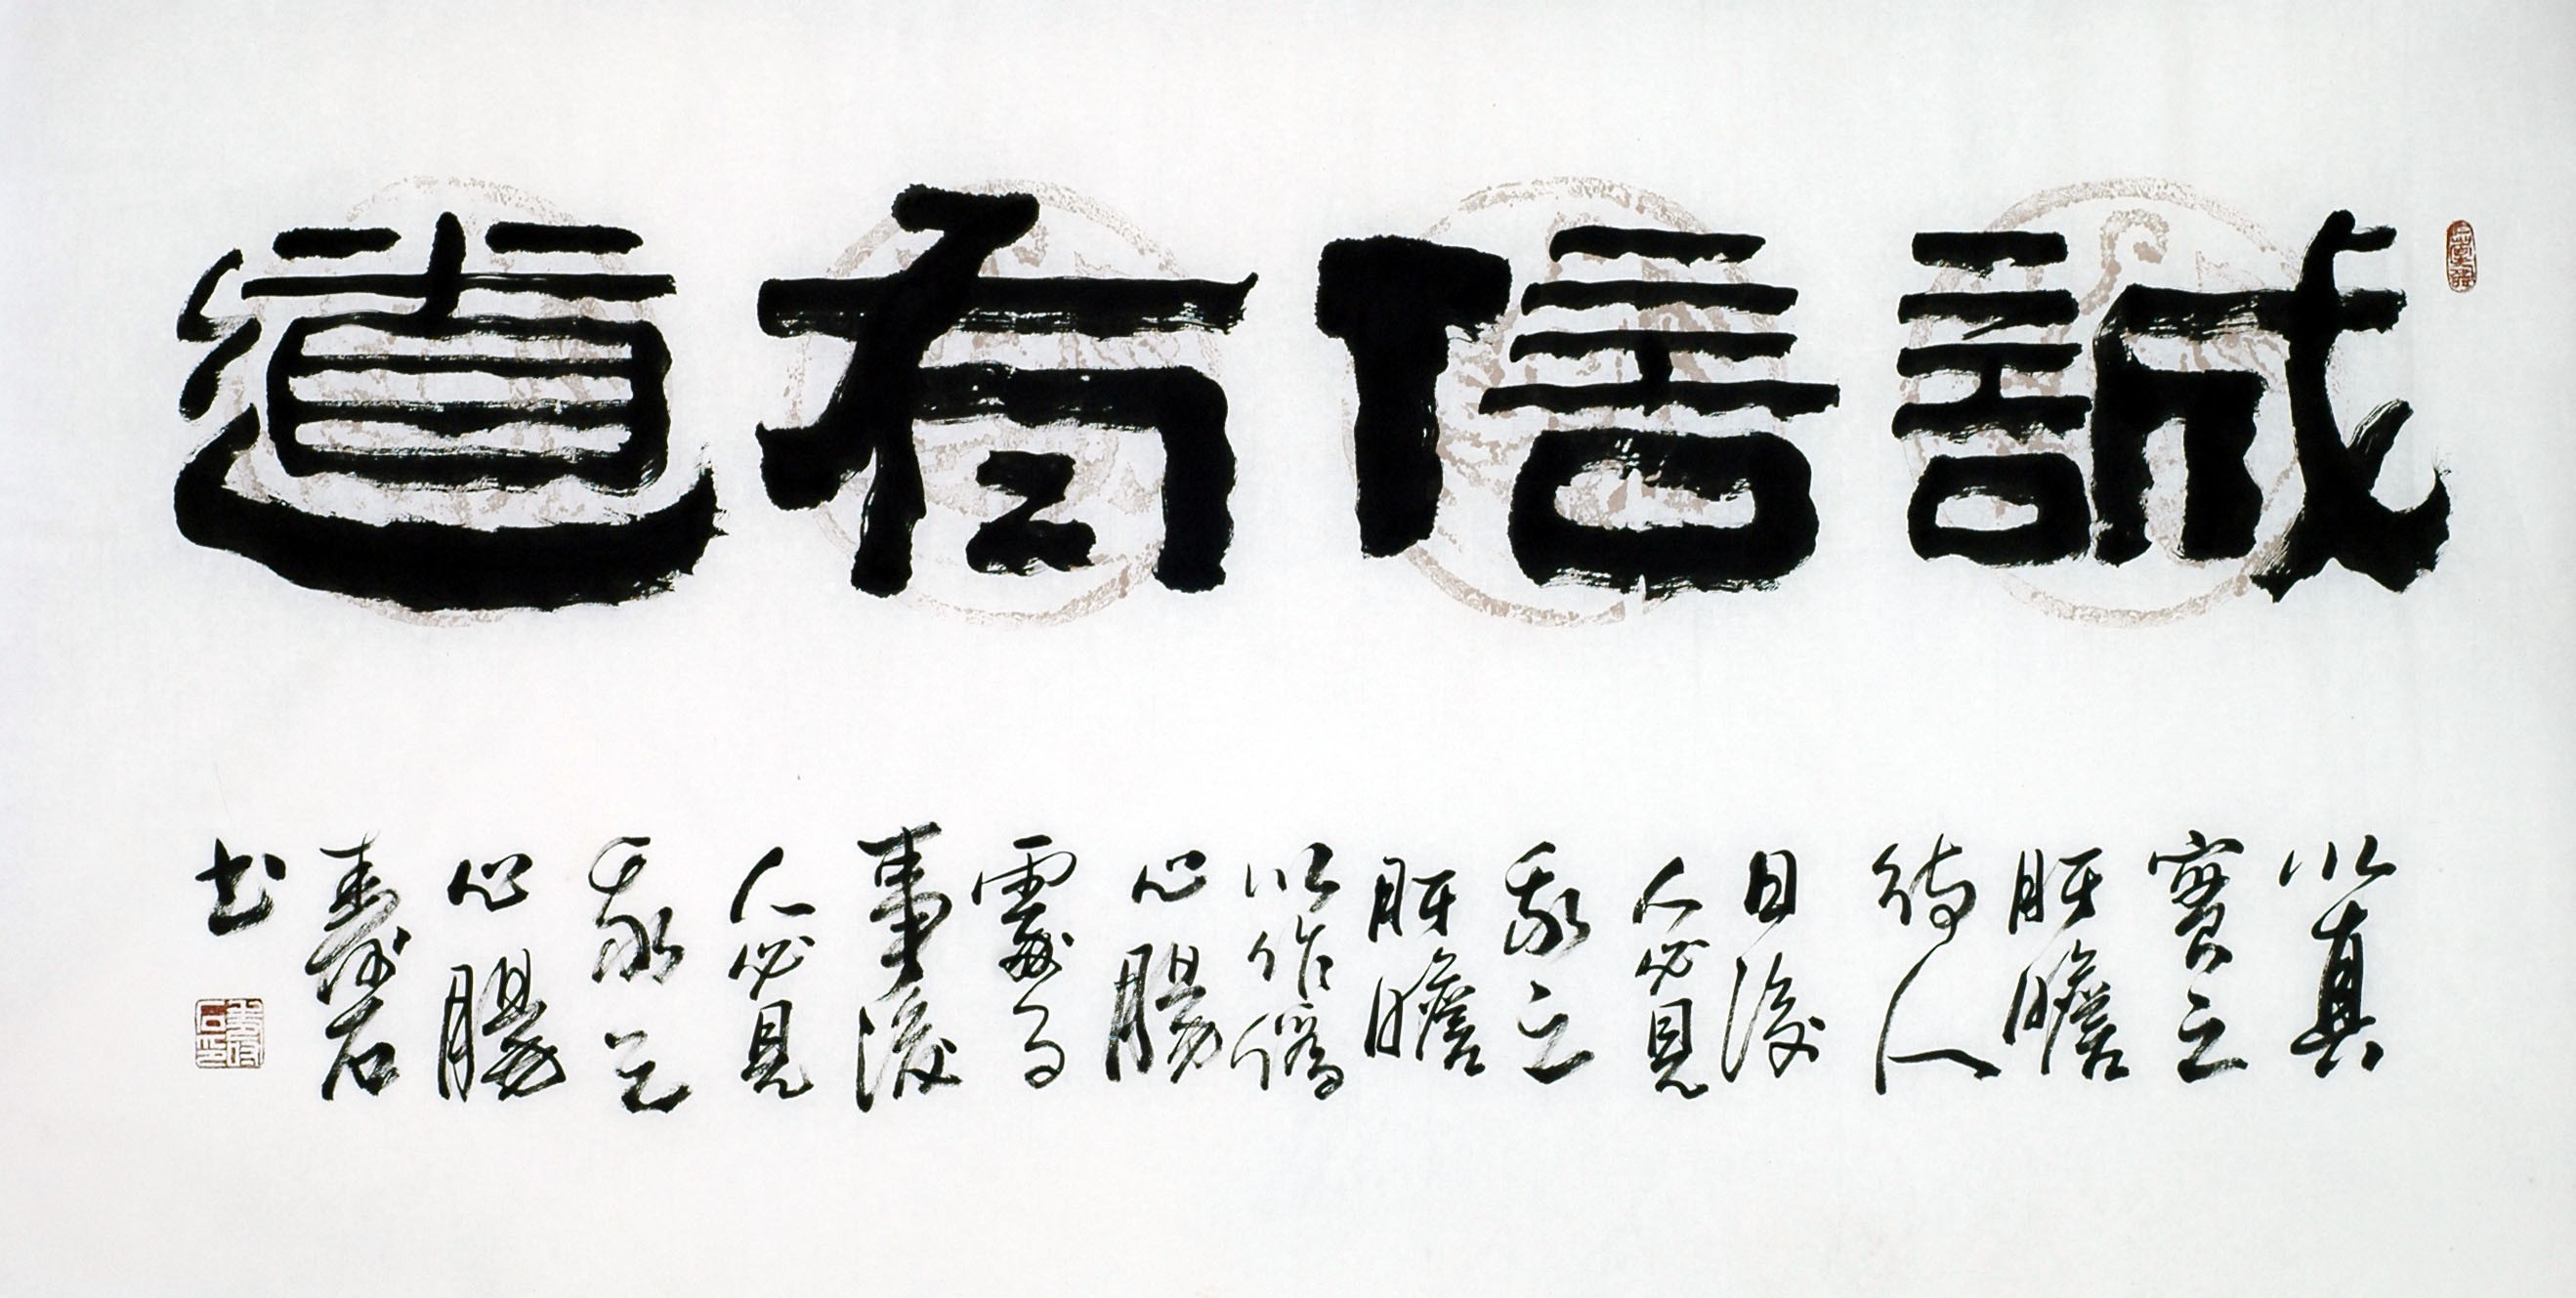 誠信有道
以真
實之
肝膽
待人
日後
人必見
我之
肝膽
以作僞
心腸
處
事後
人必見
我之
心腸
石
書